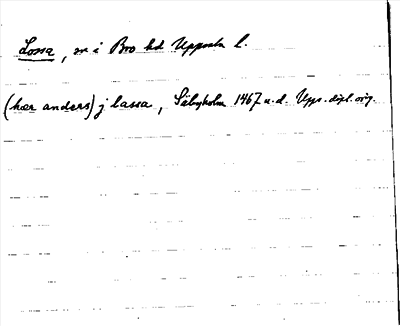 Lossa, sn i Bro hd Uppsala l.
(her anders) j lassa, Säbyholm 1467 u.d. Upps. dipl. orig.